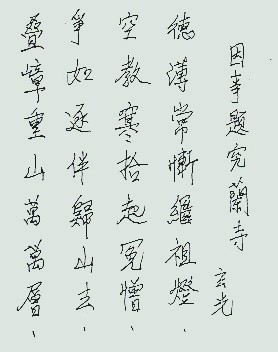 因事題究蘭寺
玄光
德薄常慚繼祖燈、
空教寒拾起冤憎、
爭如逐伴歸山去、
疊嶂重山萬萬層、